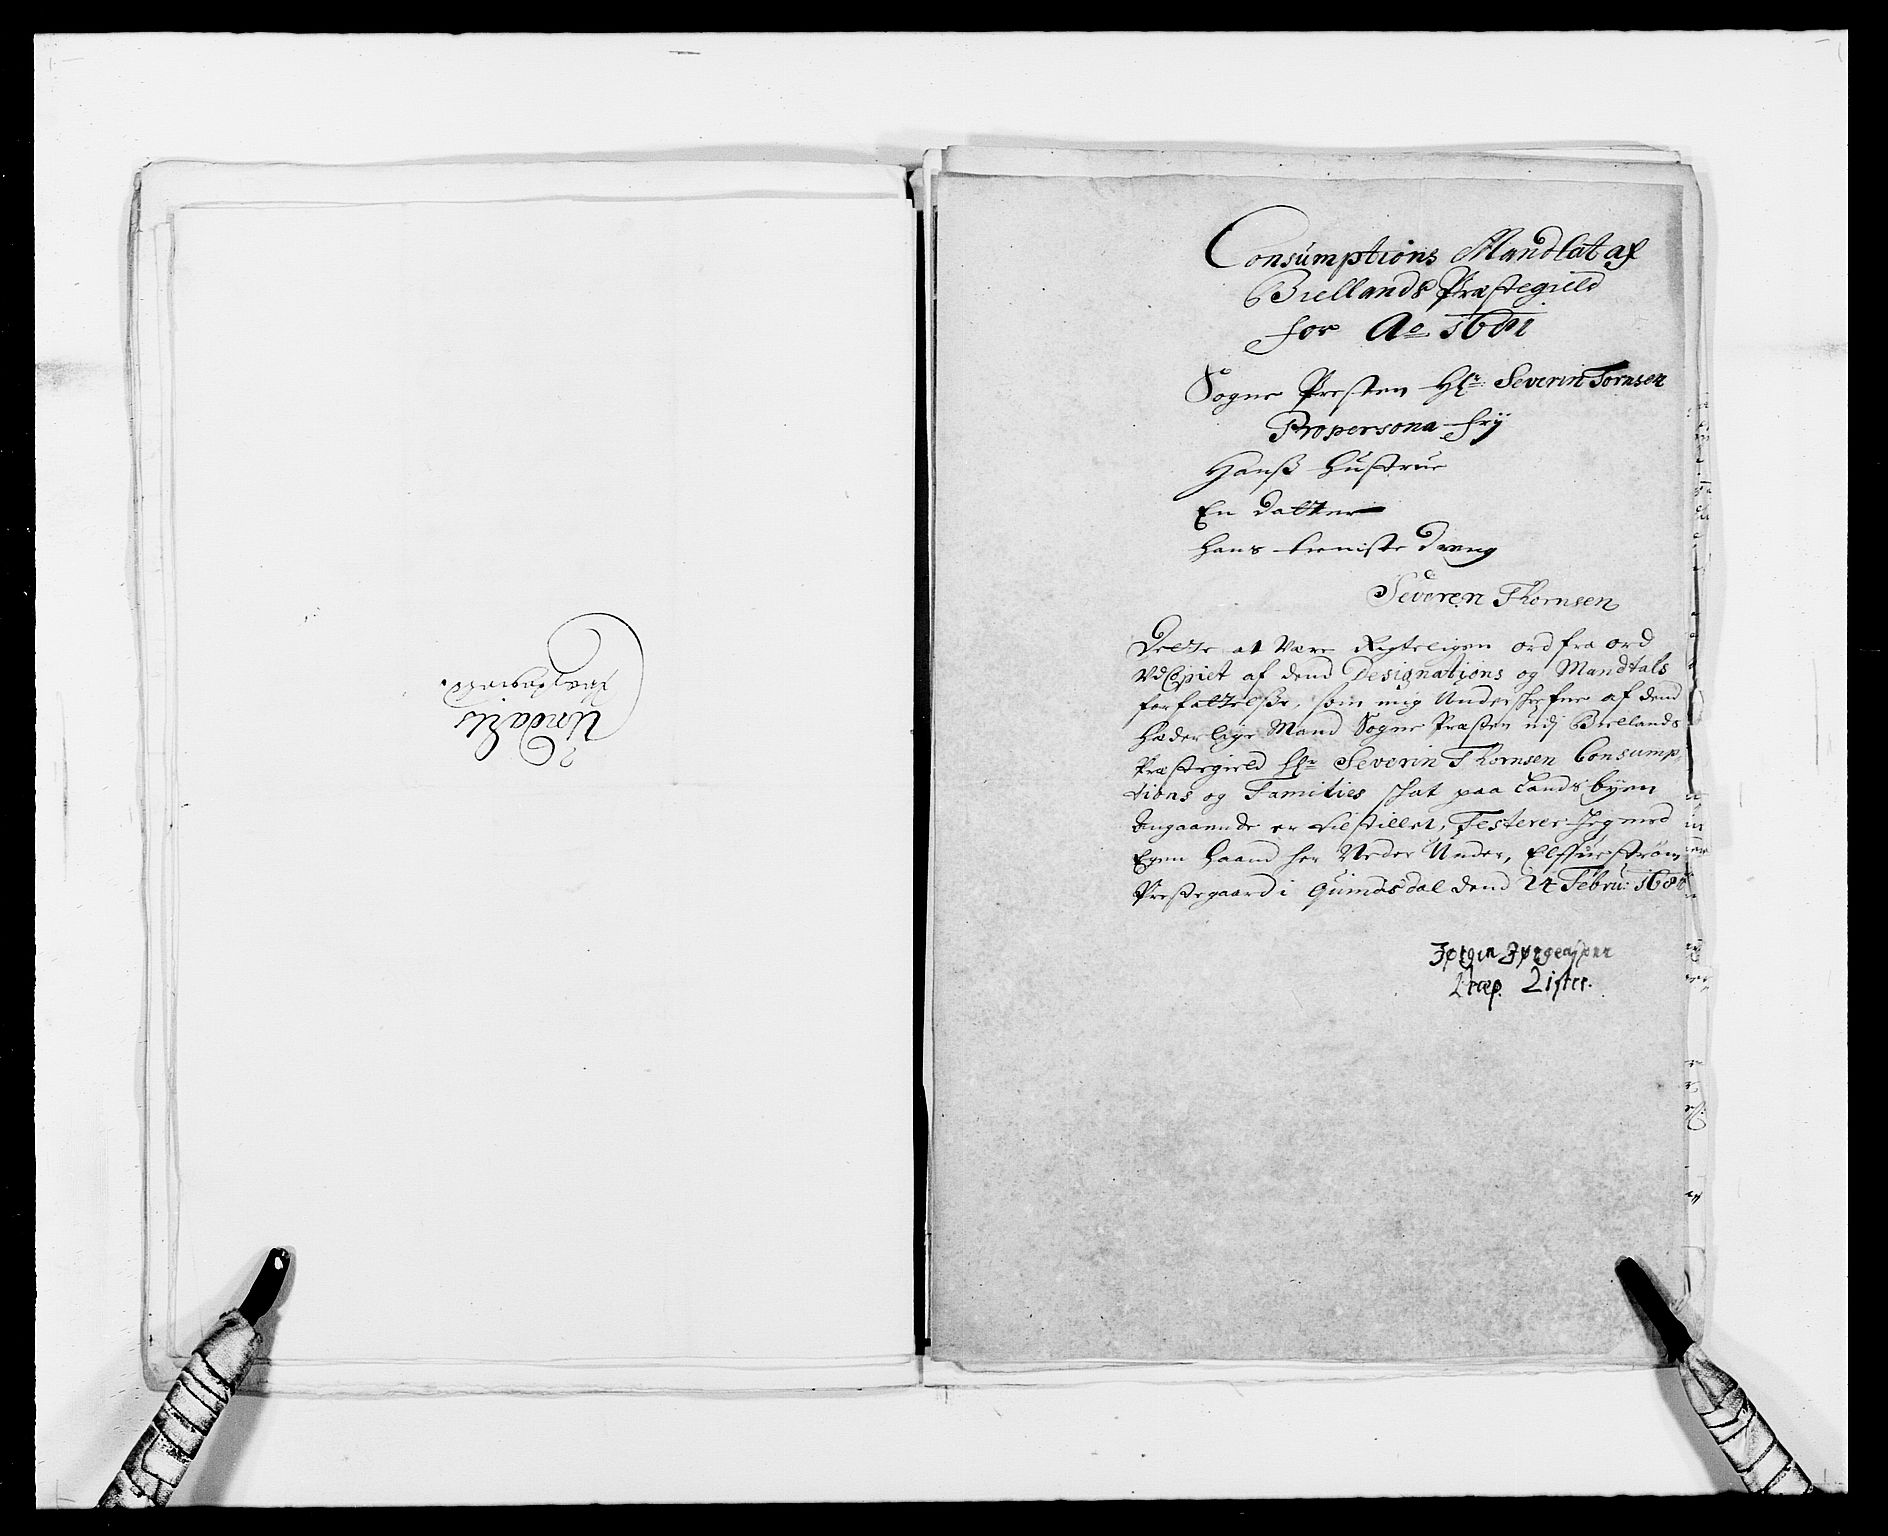 Undals
Consumptions Mandtat af
Biellands Præstegield
for Ao 1681
Sogne Presten Hr: Severin Tornsen
Propersona frij
Hanß Hustrue
En Datter
hans tieniste Dreng
Severen Thornsen
Dette at Være Rigteligen ord fra ord
VdCopiet af dend Designations og Mandtals
forfattelße, som mig Underschrefne af dend
Hæderlige Mand Sogne Præsten udj Biellands
Præstegield Hr Severin Thornsen Consump
tions og Families schat paa Landsbyen
Angaaende er tilstillet, Testerer Jeg med
Egen Haand her Neder Under,
Præstegaard i Quindsdal dend 24 Febru: 168
Jørgen Jørgensønn
Præp. Lister.